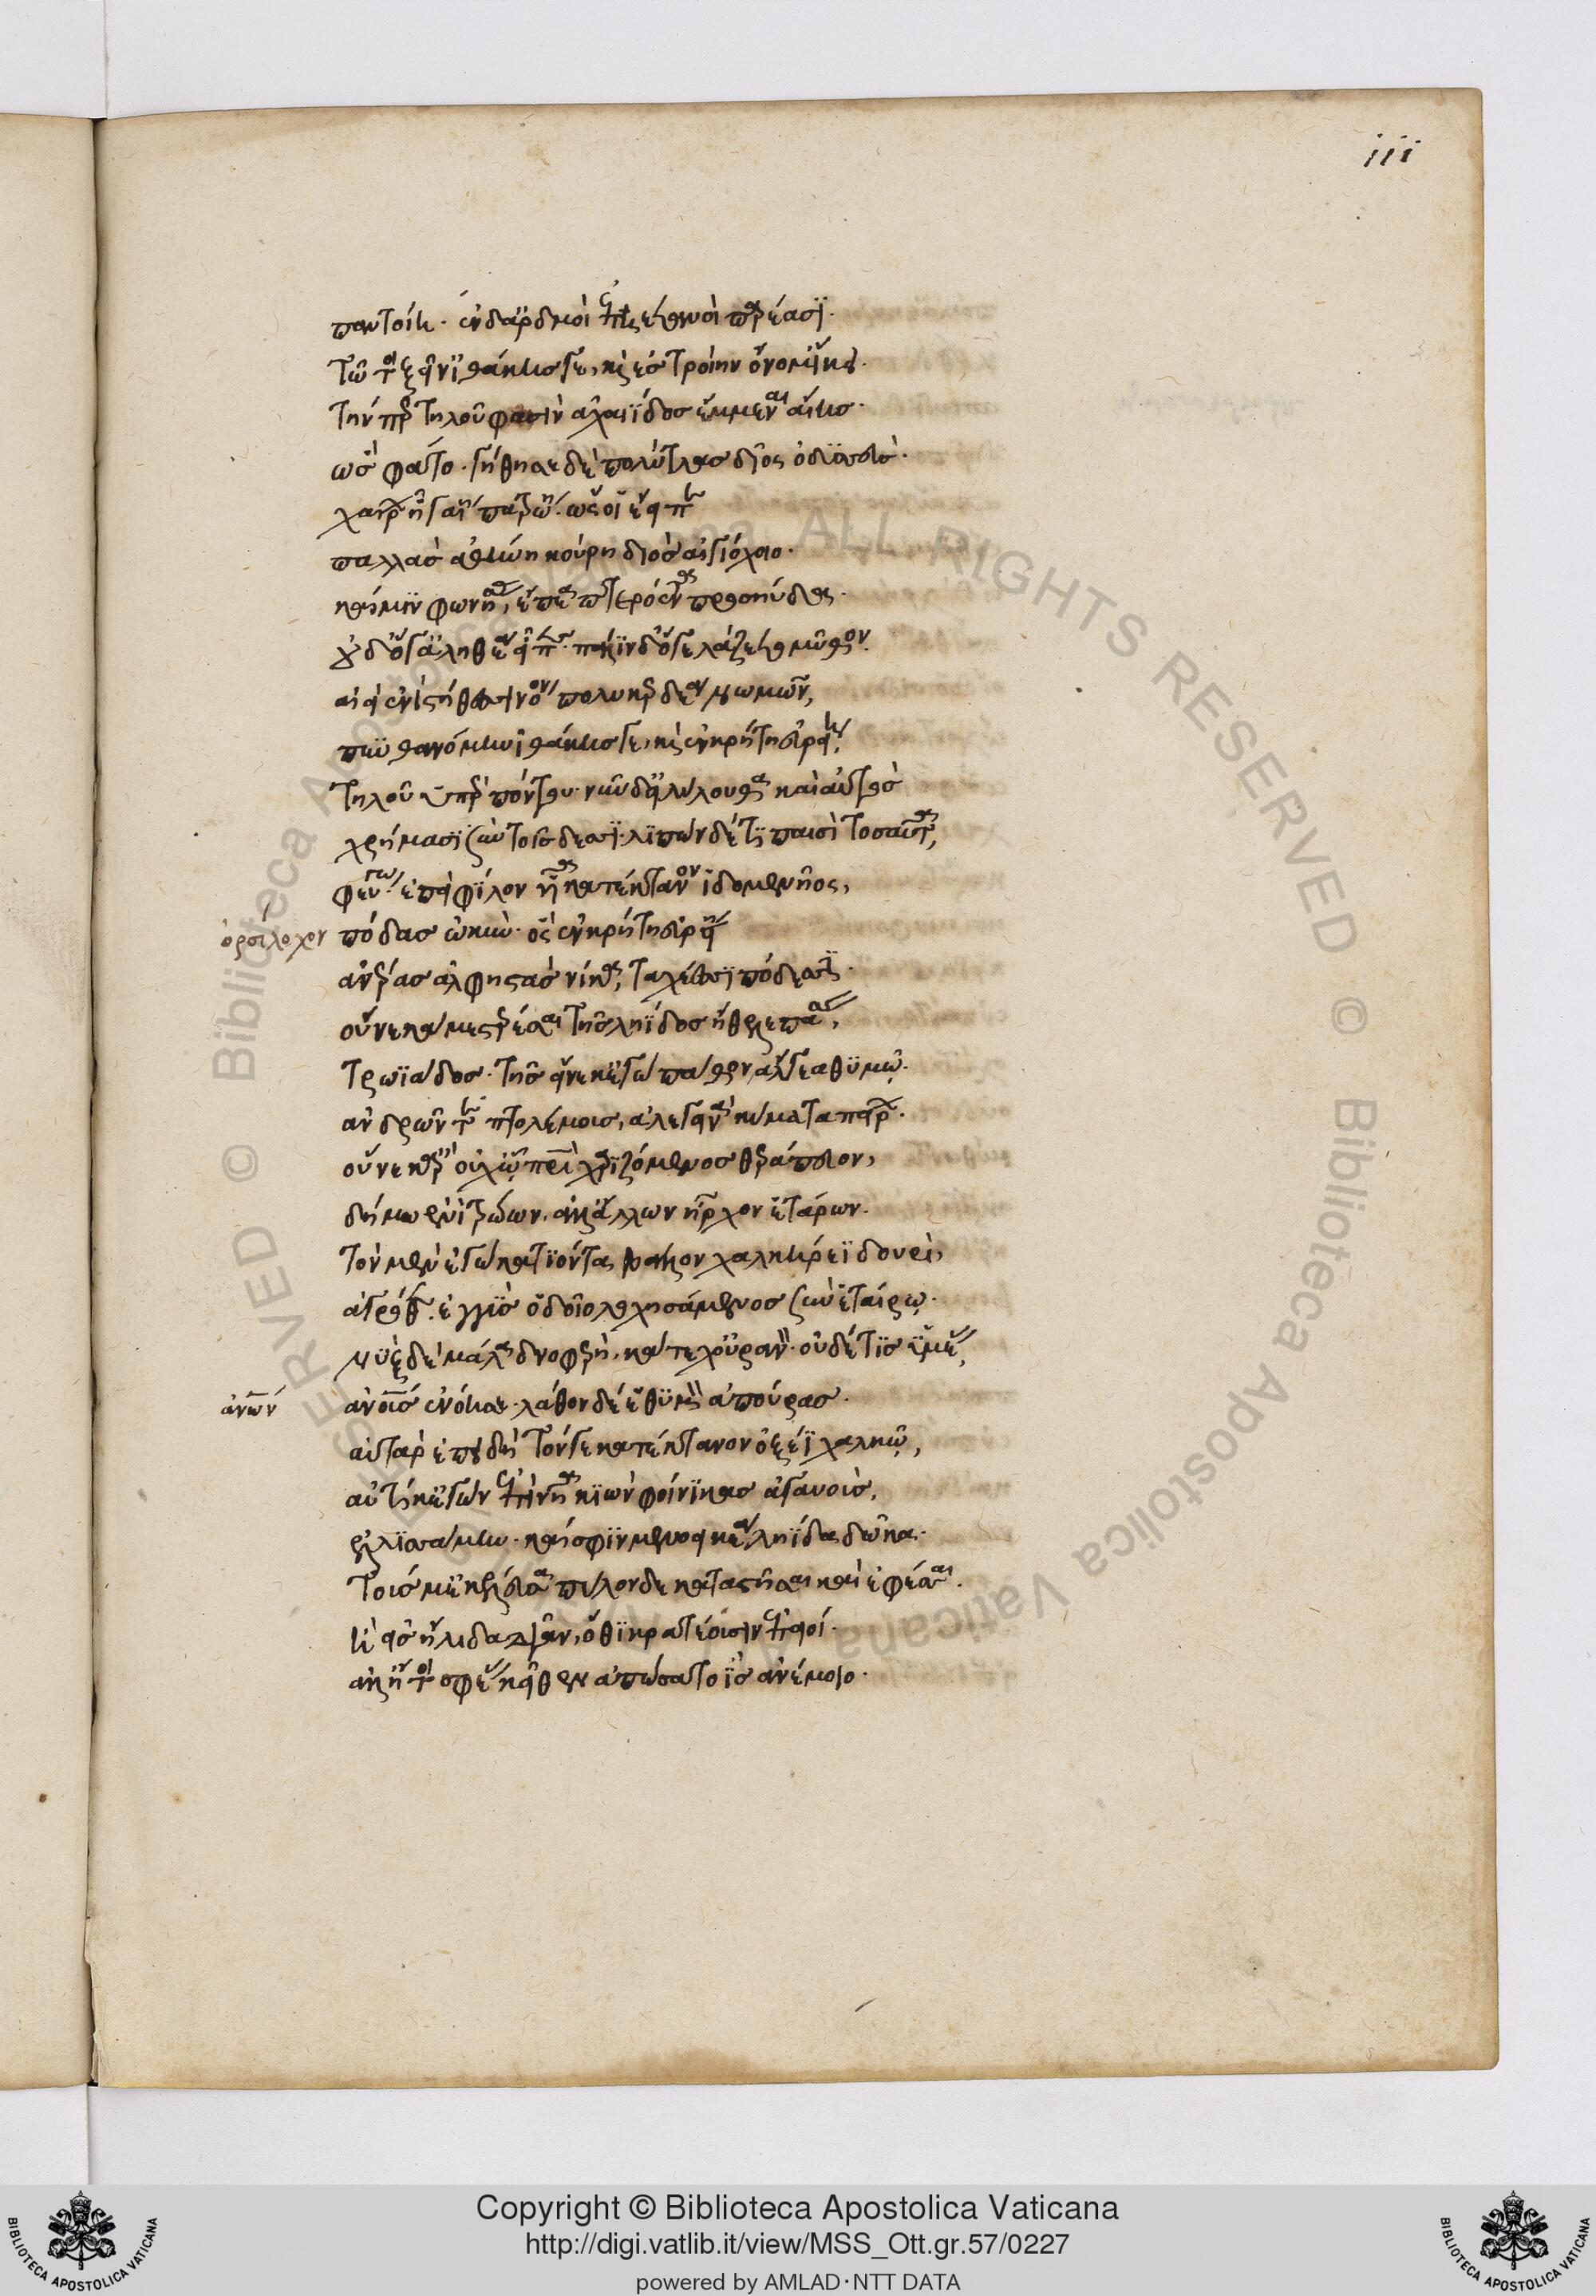 iii
παντοίη· ἐν δ' ἀρδμοὶ ἐπηετανοὶ παρέασι·
τῶ τοι ξεῖν' ἰθάκης γε, καὶ ἐς τροίην ὄνομ' ἵκει·
τήν περ τηλοῦ φασὶν ἀχαιΐδος ἔμμεναι αἴης·
ὣς φάτο· γήθησε δὲ πολύτλας δῖος ὀδυσσεύς·
χαίρων ᾗ γαίῃ πατρῴη· ὥς οἱ ἔειπε
παλλὰς ἀθηναίη κούρη διὸς αἰγιόχοιο·
καί μιν φωνήσας, ἔπεα πτερόεντα προσηύδα·
οὐδ' ὅ γ' ἀληθέα εἶπε· πάλιν δ' ὅ γε λάζετο μῦθον·
αἰεὶ ἐνὶ στήθεσσι νόον πολυκερδέα νωμῶν,
πυνθανόμην ἰθάκης γε, καὶ ἐν κρήτη εὐρείη,
τηλοῦ ὑπὲρ πόντου· νῦν δ' εἰλήλουθα καὶ αὐτὸς
χρήμασι σὺν τοίσδεσι· λιπὼν δ' ἔτι παισὶ τοσαῦτα,
φεύγω· ἐπεὶ φίλον υἷα κατέκτανον ἰδομενῆος,
ὀρσίλοχον πόδας ὠκύν· ὃς ἐν κρήτη εὐρείη
ἀνέρας ἀλφηστὰς νίκα, ταχέεσσι πόδεσσι·
οὕνεκά με στερέσαι τῆς ληΐδος ἤθελε πάσης,
τρωϊάδος· τῆς εἵνεκ' ἐγὼ πάθον ἄλγεα θυμῷ·
ἀνδρῶν τε πτολέμους, ἀλεγεινὰ κύματα πείρων·
οὕνεκ' ἄρ' οὐχ ᾧ πατρὶ χαριζόμενος θεράπευον,
δήμω ἐνὶ τρώων, ἀλλ' ἄλλων ἦρχον ἑταίρων·
τὸν μὲν ἐγὼ κατιόντα βάλον χαλκήρεϊ δουρί,
ἀγρόθεν· ἐγγὺς ὁδοῖο λοχησάμενος σὺν ἑταίρῳ·
νὺξ δὲ μάλα δνοφερὴ, κάτεχ' οὐρανόν· οὐδέ τις ἡμέας,
ἀνων
ἀνοις ἐνόησε· λάθον δέ ἑ θυμὸν ἀπούρας·
αὐτὰρ ἐπειδὴ τόν γε κατέκτανον ὀξέϊ χαλκῷ,
αὐτίκ' ἐγὼν ἐπὶ νῆα κιὼν φοίνικας ἀγαυοὺς,
ἐλλισάμην· καί σφιν μενοεικέα ληΐδα δῶκα·
τούς μ' ἐκέλευσα πύλονδε καταστῆσαι καὶ ἐφέσσαι·
ἢ εἰς ἤλιδα δῖαν, ὅθι κρατέουσιν ἐπειοί·
ἀλλ' ἤτοι σφέας κεῖθεν ἀπώσατο ἲς ἀνέμοιο·
Copyright © Biblioteca Apostolica Vaticana
http://digi.vatlib.it/view/MSS_Ott.gr.57/0227
powered by AMLAD·NTT DATA